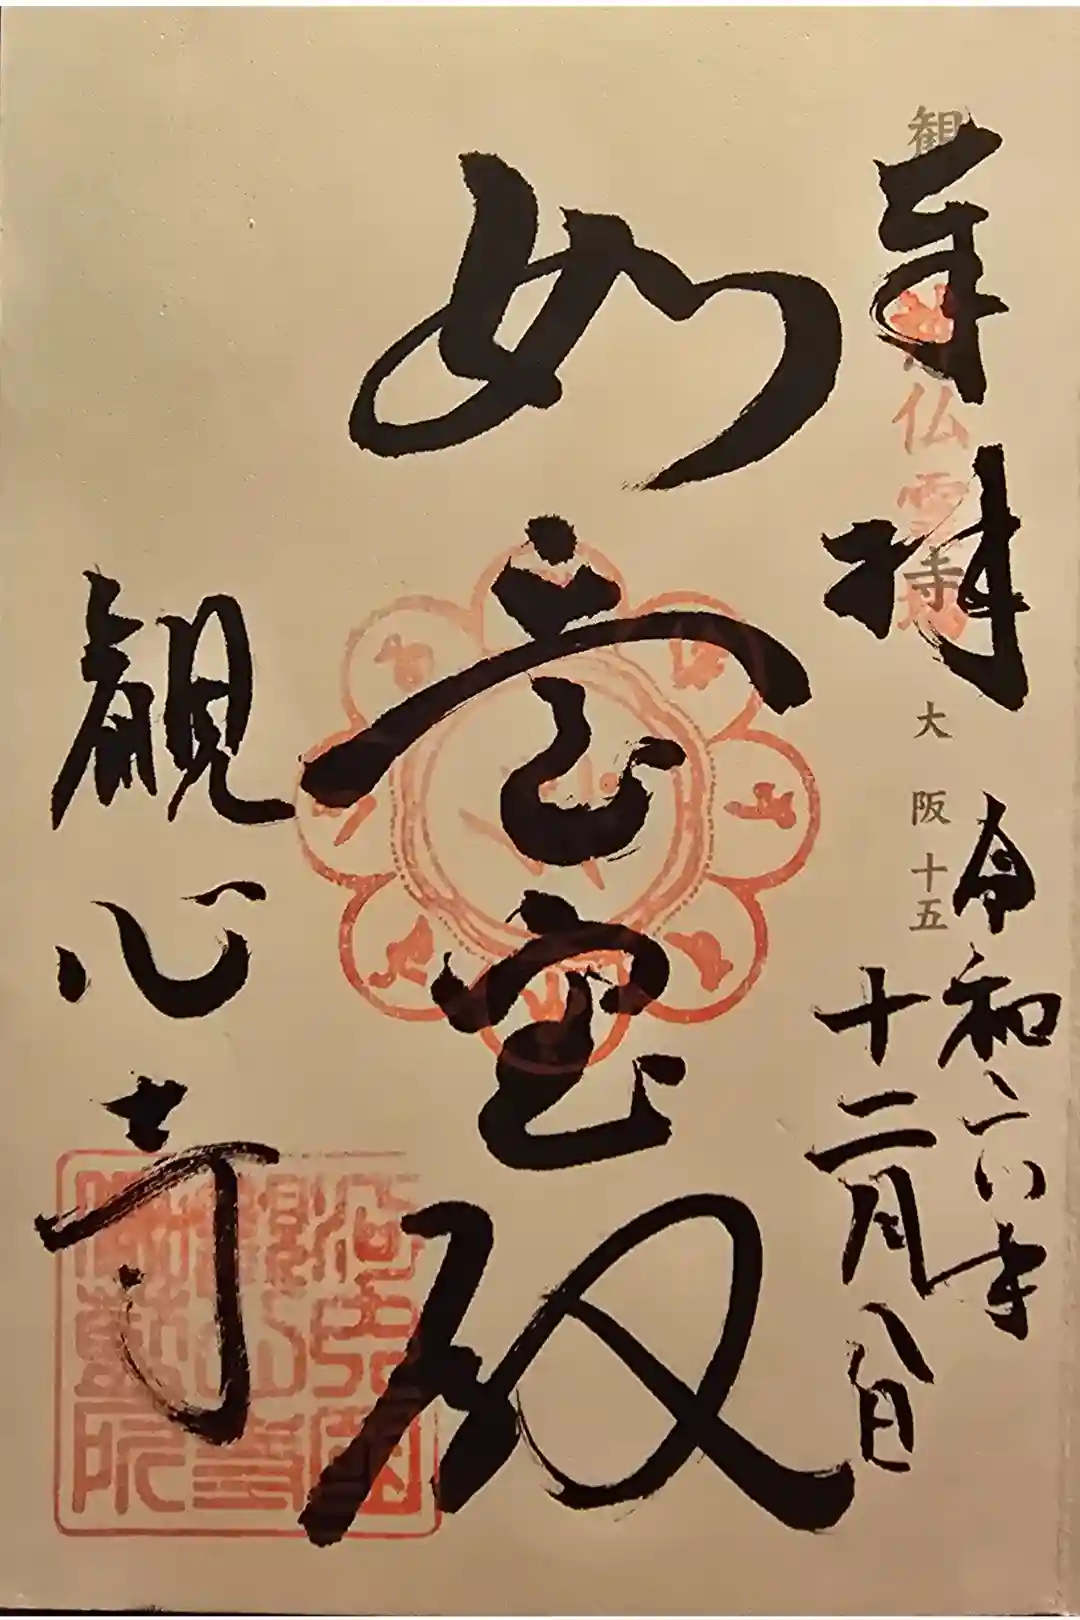 奉拝
令和六年
十二月八日
観心寺
仏霊場
大阪十五
如意宝殿
観心寺